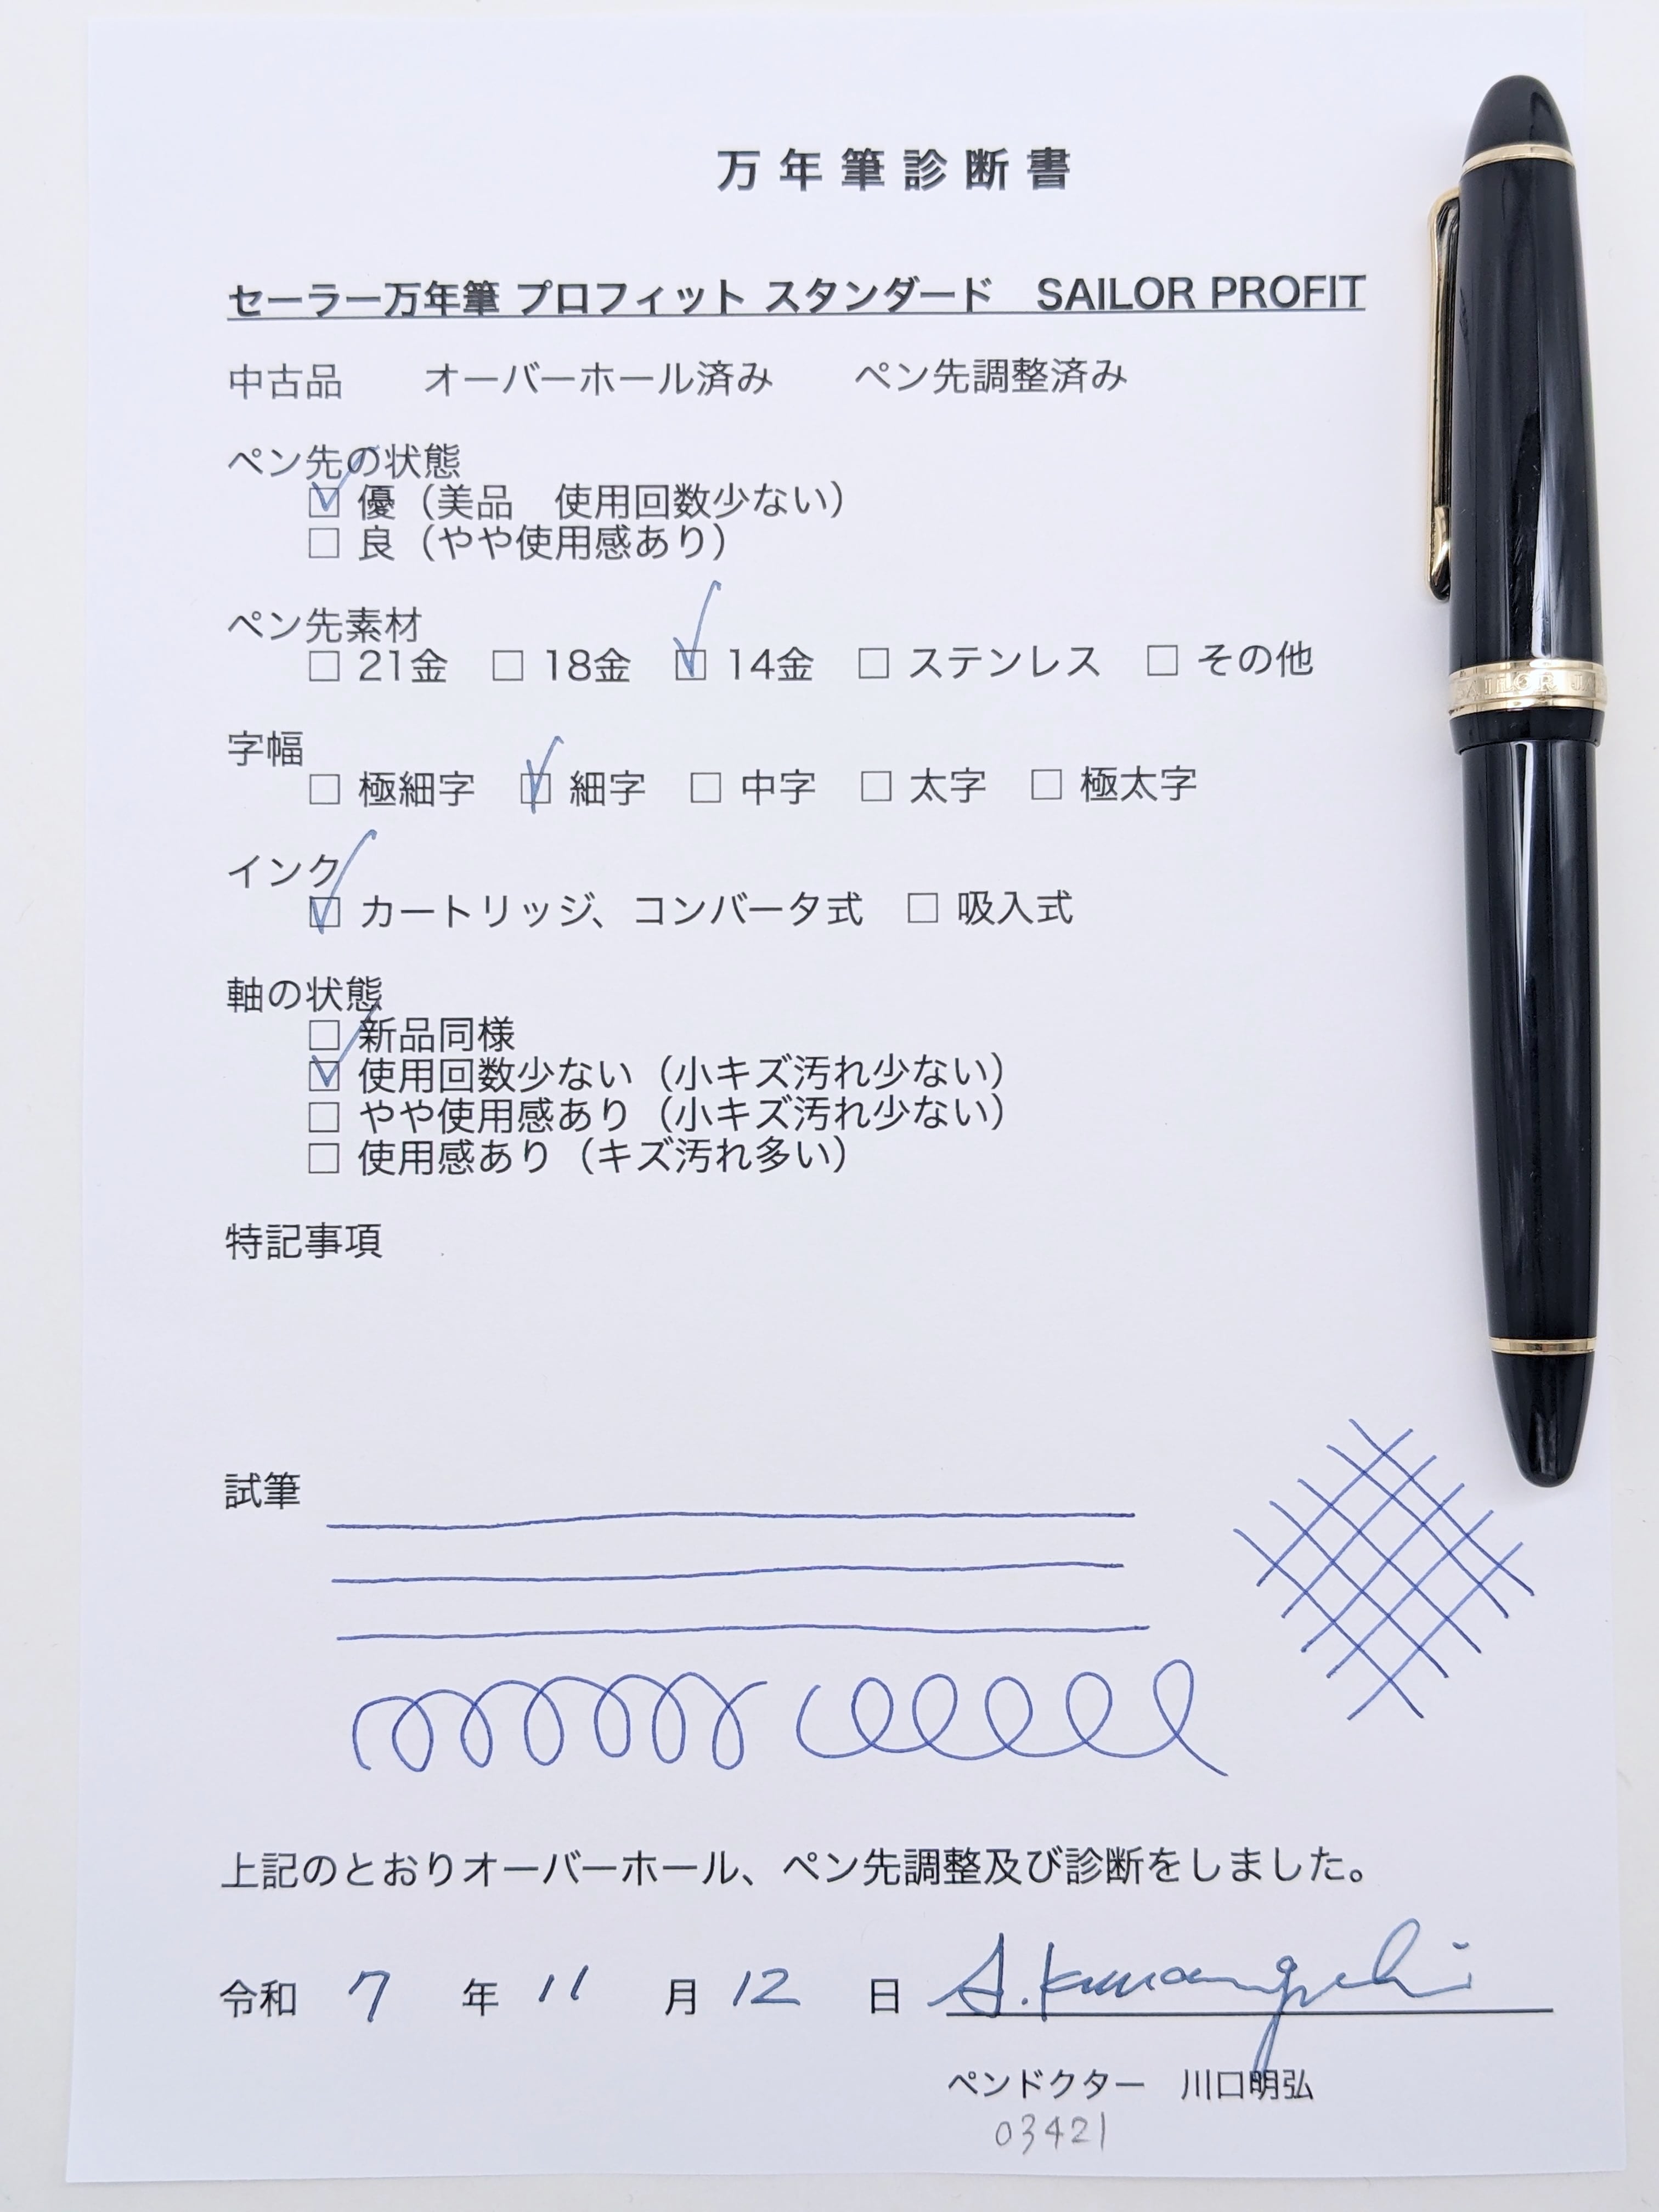 万年筆診断書
セーラー万年筆 プロフィット スタンダード　SAILOR PROFIT
中古品　　オーバーホール済み　　ペン先調整済み
ペン先の状態
☑ 優（美品　使用回数少ない）
□ 良（やや使用感あり）
ペン先素材
□ 21金　□ 18金　☑ 14金　□ ステンレス　□ その他
字幅
□ 極細字　☑ 細字　□ 中字　□ 太字　□ 極太字
インク
☑ カートリッジ、コンバータ式　□ 吸入式
軸の状態
□ 新品同様
☑ 使用回数少ない（小キズ汚れ少ない）
□ やや使用感あり（小キズ汚れ少ない）
□ 使用感あり（キズ汚れ多い）
特記事項
試筆
上記のとおりオーバーホール、ペン先調整及び診断をしました。
令和 7 年 11 月 12 日 A. Kawaguchi
ペンドクター　川口明弘
03421
SAILOR